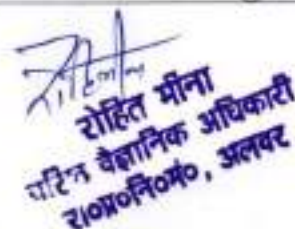 रोहित मीना
वरिष्ठ वैज्ञानिक अधिकारी
रा०प्र०नि०मं०, अलवर